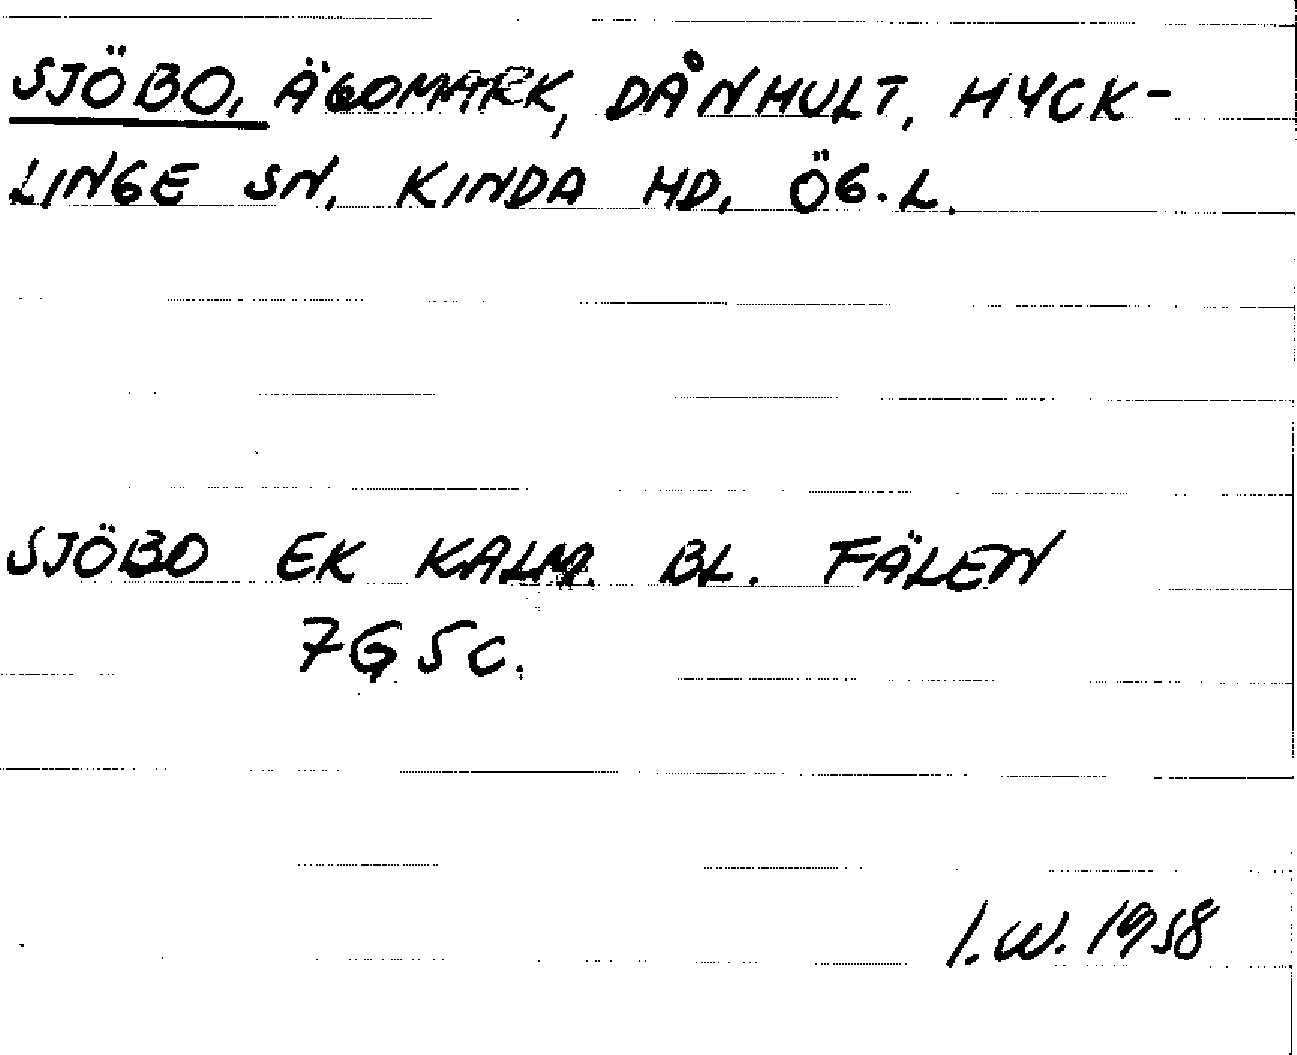 SJÖBO, ÄGOMARK, DÅNHULT, HYCK-
LINGE SN, KINDA HD, ÖG.L.
SJÖBO EK KALM. BL. FÄLEN
7G5c.
I.W. 1958